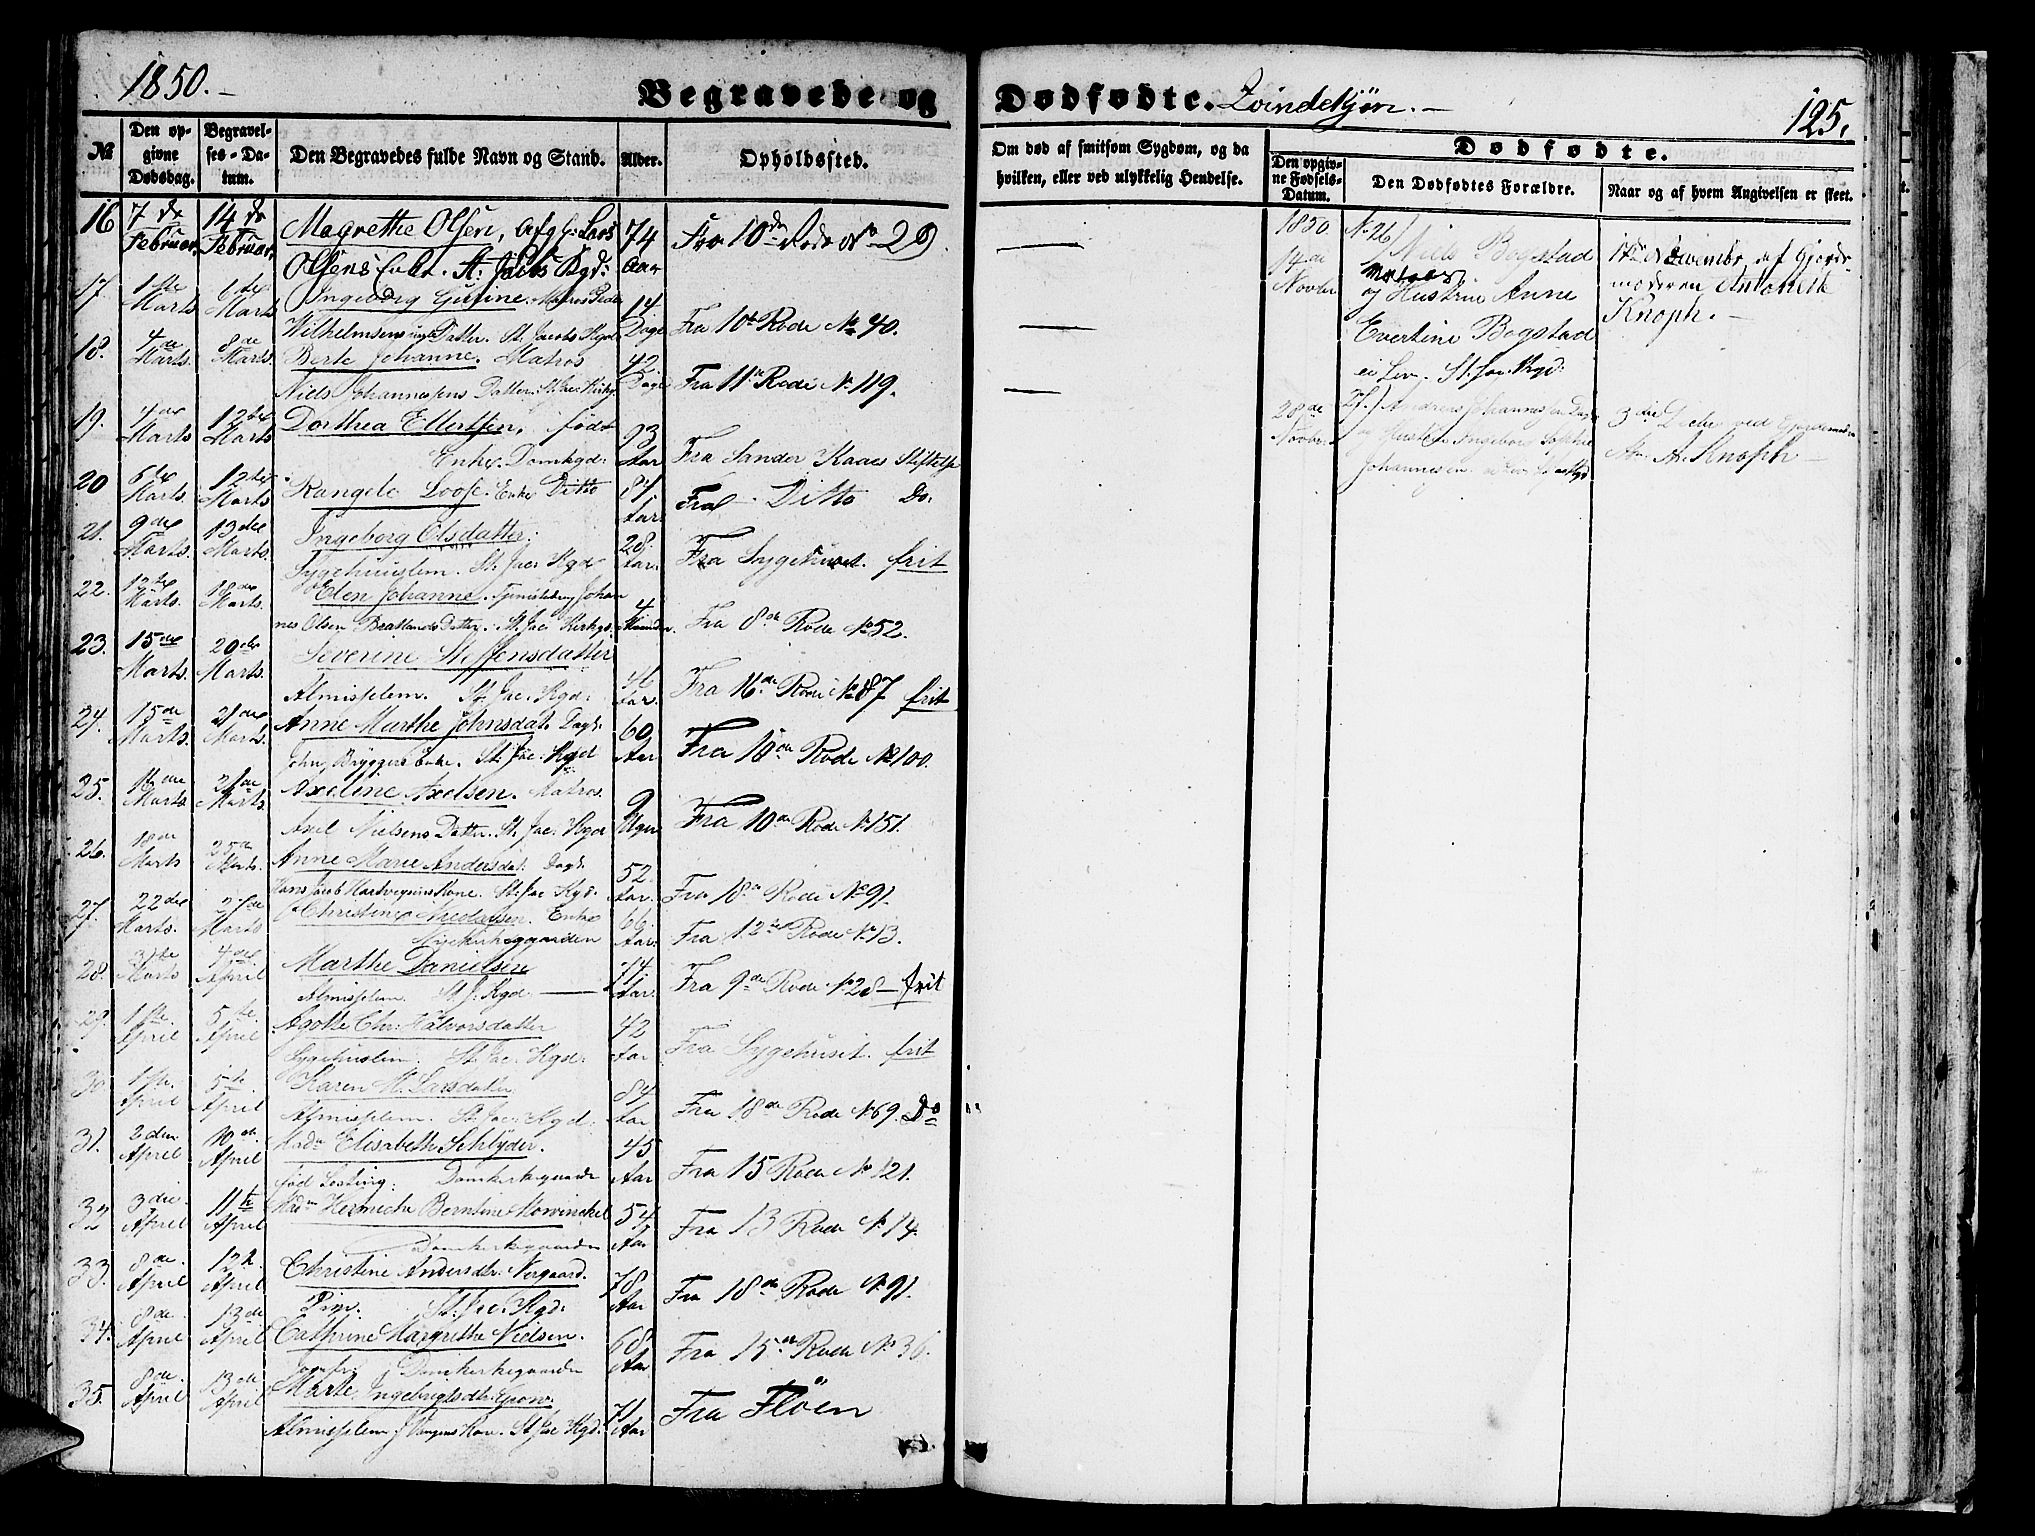 1850.-
Begravede og Dødfødte. Qvindekjøn.-
125.
№
Den opgivne Dødsdag.
Begravelses-Datum.
Den Begravedes fulde Navn og Stand.
Alder.
Opholdssted.
Om død af smitsom Sygdom, og da hvilken, eller ved ulykkelig Hendelse.
Dødfødte.
Den opgivne Fødsels-Datum.
Den Dødfødtes Forældre.
Naar og af hvem Angivelsen er skeet.
16 7de Februar. 14de Februar. Magrethe Olsen, Afg: Lars 74 Aar Fra 10de Rode No 29
Olsens Enke. St: Jacobs Kgd:
17. 1ste Marts 6te Marts Ingeborg Gurine. Matros Peder 14 Dage Fra 10de Rode No 40.
Wilhelmsens Datter. St. Jacobs Kgd
18. 4de Marts. 8de Marts. Berte Johanne. Matros 42 Dage Fra 11te Rode No 119.
Niels Johannessens Datter. St. Jac. Kirkg.
19. 4de Marts 12te Marts. Dorthea Ellertsen, født 93 Aar Fra Sander Kaaes Stiftelse
Enke. Domkgd:
20 6te Marts. 12te Marts. Rangele Loose. Enke Ditto 84 Aar. Fra Ditto Do.
21. 9de Marts. 13de Marts. Ingeborg Olsdatter. 28. Aar. Fra Sygehuset. frit
Sygehuuslem. St. Jac. Kgd
22. 12te Marts. 18de Marts. Elen Johanne. Johan 4 Maaneder. Fra 8de Rode No 52.
nes Olsen Bratlands Datter. St. Jac Kirkg.
23. 15de Marts. 20de Marts. Severine Steffensdatter 46 Aar. Fra 16de Rode No 87 frit
Almisselem. St. Jac. Kgd.
24. 15de Marts. 21de Marts. Anne Marthe Johnsdat. Dagk. 60 Aar Fra 18de Rode No 100.
John Bryggers Enke. St. Jac. Kgd
25. 16de Marts 21de Marts. Axeline Axelsen. Matros 9 Uger Fra 10de Rode No 151.
Axel Nielsens Datter. St. Jac. Kgd
26. 18de Marts 25de Marts. Anne Marie Andersdat. Dagk. 52. Aar. Fra 18de Rode No 91.
Hans Jacob Hartvigsens Kone. St. Jac Kgd.
27. 22de Marts. 27de Marts Christine Enke 66 Aar. Fra 12te Rode No 13.
Nyekirkegaarden
28. Marts 4de April Marthe Danielsen 74 Aar. Fra 9de Rode No 28 - frit
Almisselem. St. J. Kgd.
29. 1ste April 5te April Agothe Chr. Halvorsdatter 42 Aar Fra Sygehuset. frit
Sygehuslem. St. Jac. Kgd.
30 1ste April 5te April Karen M. Larsdatter 84 Aar Fra 18de Rode No 69. Do
Almisselem. St. Jac. Kgd.
31. 2den April 10de April Madm Elisabeth Schlyder. 45 Aar Fra 15 Rode No 121.
fød Losting: Domkirkegaarden
32 3die April 11te April Madm Hermiche Berntine Mowinckel 54 Aar Fra 13 Rode No 14.
Domkirkegaarden
33. 8de April 12te April Christine Andersdtr. Nergaard. 78 Aar Fra 18de Rode No 91.
Pige. St. Jac. Kgd.
34. 8de April 13de April Cathrine Margrethe Nielsen. 68 Aar Fra 15de Rode No 36.
Jomfru Domkirkegaarden
35. 8de April 13de April Marte Ingebrigtsdtr. 71 Aar Fra Fløen
Almisselem Kone. St. Jac Kgd.
1850. 14de Novbr No 26/ Niels Bogstad
Matros
og Hustrue Anne
Evertine Bogstad
ei Lev. St. Jac. Kgd:
17de November af Gjorde-
moderen Antonette
Knoph.-
28de Novbr. 27./ Andreas Johannessen
og Hustru Ingeborg Sophie
Johannesen
3die Decbr ved Gjordemoder
A. Knoph